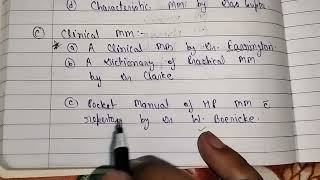 (d) Characteristic MM by Das Gupta.
(c) Clinical MM :-
* (a) A Clinical MM by Dr. Earrington.
(b) A Dictionary of Practical MM
by Dr Clarke
(c) Pocket Manual of HP MM c̄
by Dr W. Boenicke.